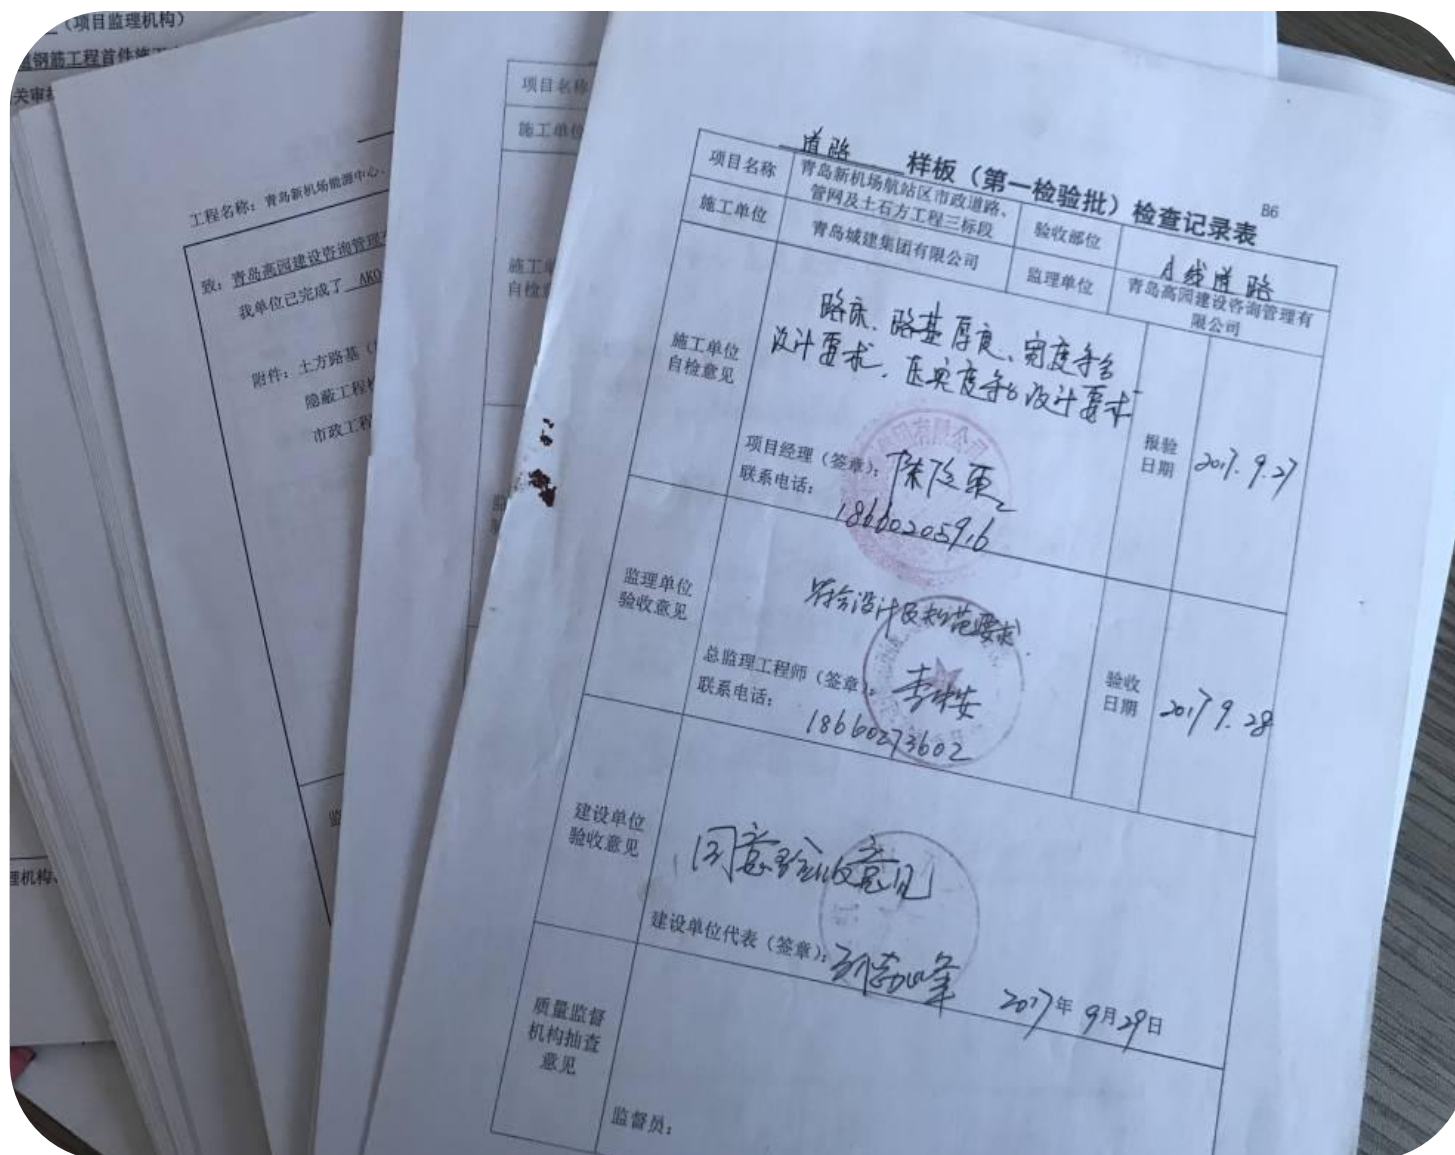 (项目监理机构)
钢筋工程首件施工
关审
工程名称：青岛新机场能源中心、
致：青岛高园建设咨询管理有
我单位已完成了 AK0
附件：土方路基（
隐蔽工程
市政工程
监
理机构、
项目名称
施工单位
施工单
自检意
B6
道路 样板（第一检验批）检查记录表
项目名称
青岛新机场航站区市政道路、
管网及土石方工程三标段
验收部位
A线道路
施工单位
青岛城建集团有限公司
监理单位
青岛高园建设咨询管理有
限公司
施工单位
自检意见
路床、路基厚度、宽度符合
设计要求、压实度符合设计要求
项目经理（签章）：
联系电话：
18660205916
报验
日期
2017.9.27
监理单位
验收意见
符合设计及规范要求.
总监理工程师（签章）：
联系电话：
18660273602
验收
日期
2017 9.28
建设单位
验收意见
同意验收意见
建设单位代表（签章）：
2017年 9月29日
质量监督
机构抽查
意见
监督员：